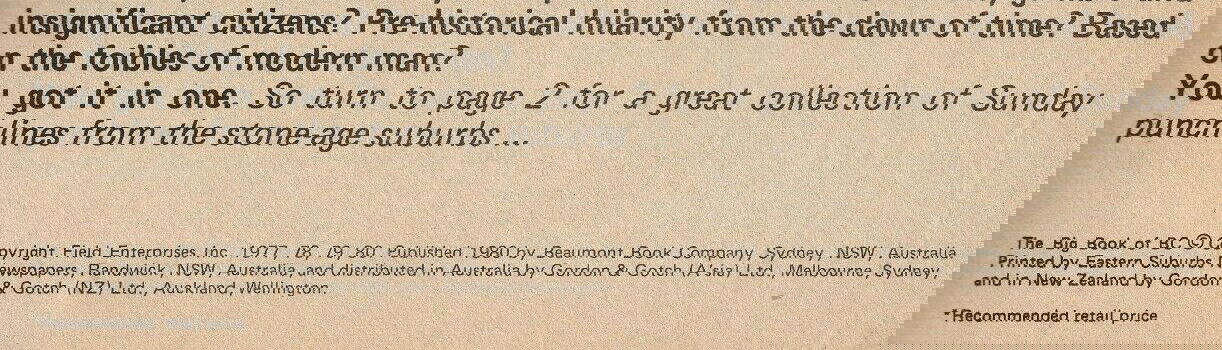 insignificant citizens? Pre-historical hilarity from the dawn of time? Based
on the foibles of modern man?
You got it in one. So turn to page 2 for a great collection of Sunday
punchlines from the stone-age suburbs ...
The Big Book of BC © Copyright Field Enterprises Inc. 1977, 78, 79, 80. Published 1980 by Beaumont Book Company, Sydney, NSW, Australia.
Printed by Eastern Suburbs Newspapers, Randwick, NSW, Australia, and distributed in Australia by Gordon & Gotch (A'sia) Ltd., Melbourne, Sydney,
and in New Zealand by Gordon & Gotch (NZ) Ltd., Auckland, Wellington.
*Recommended retail price